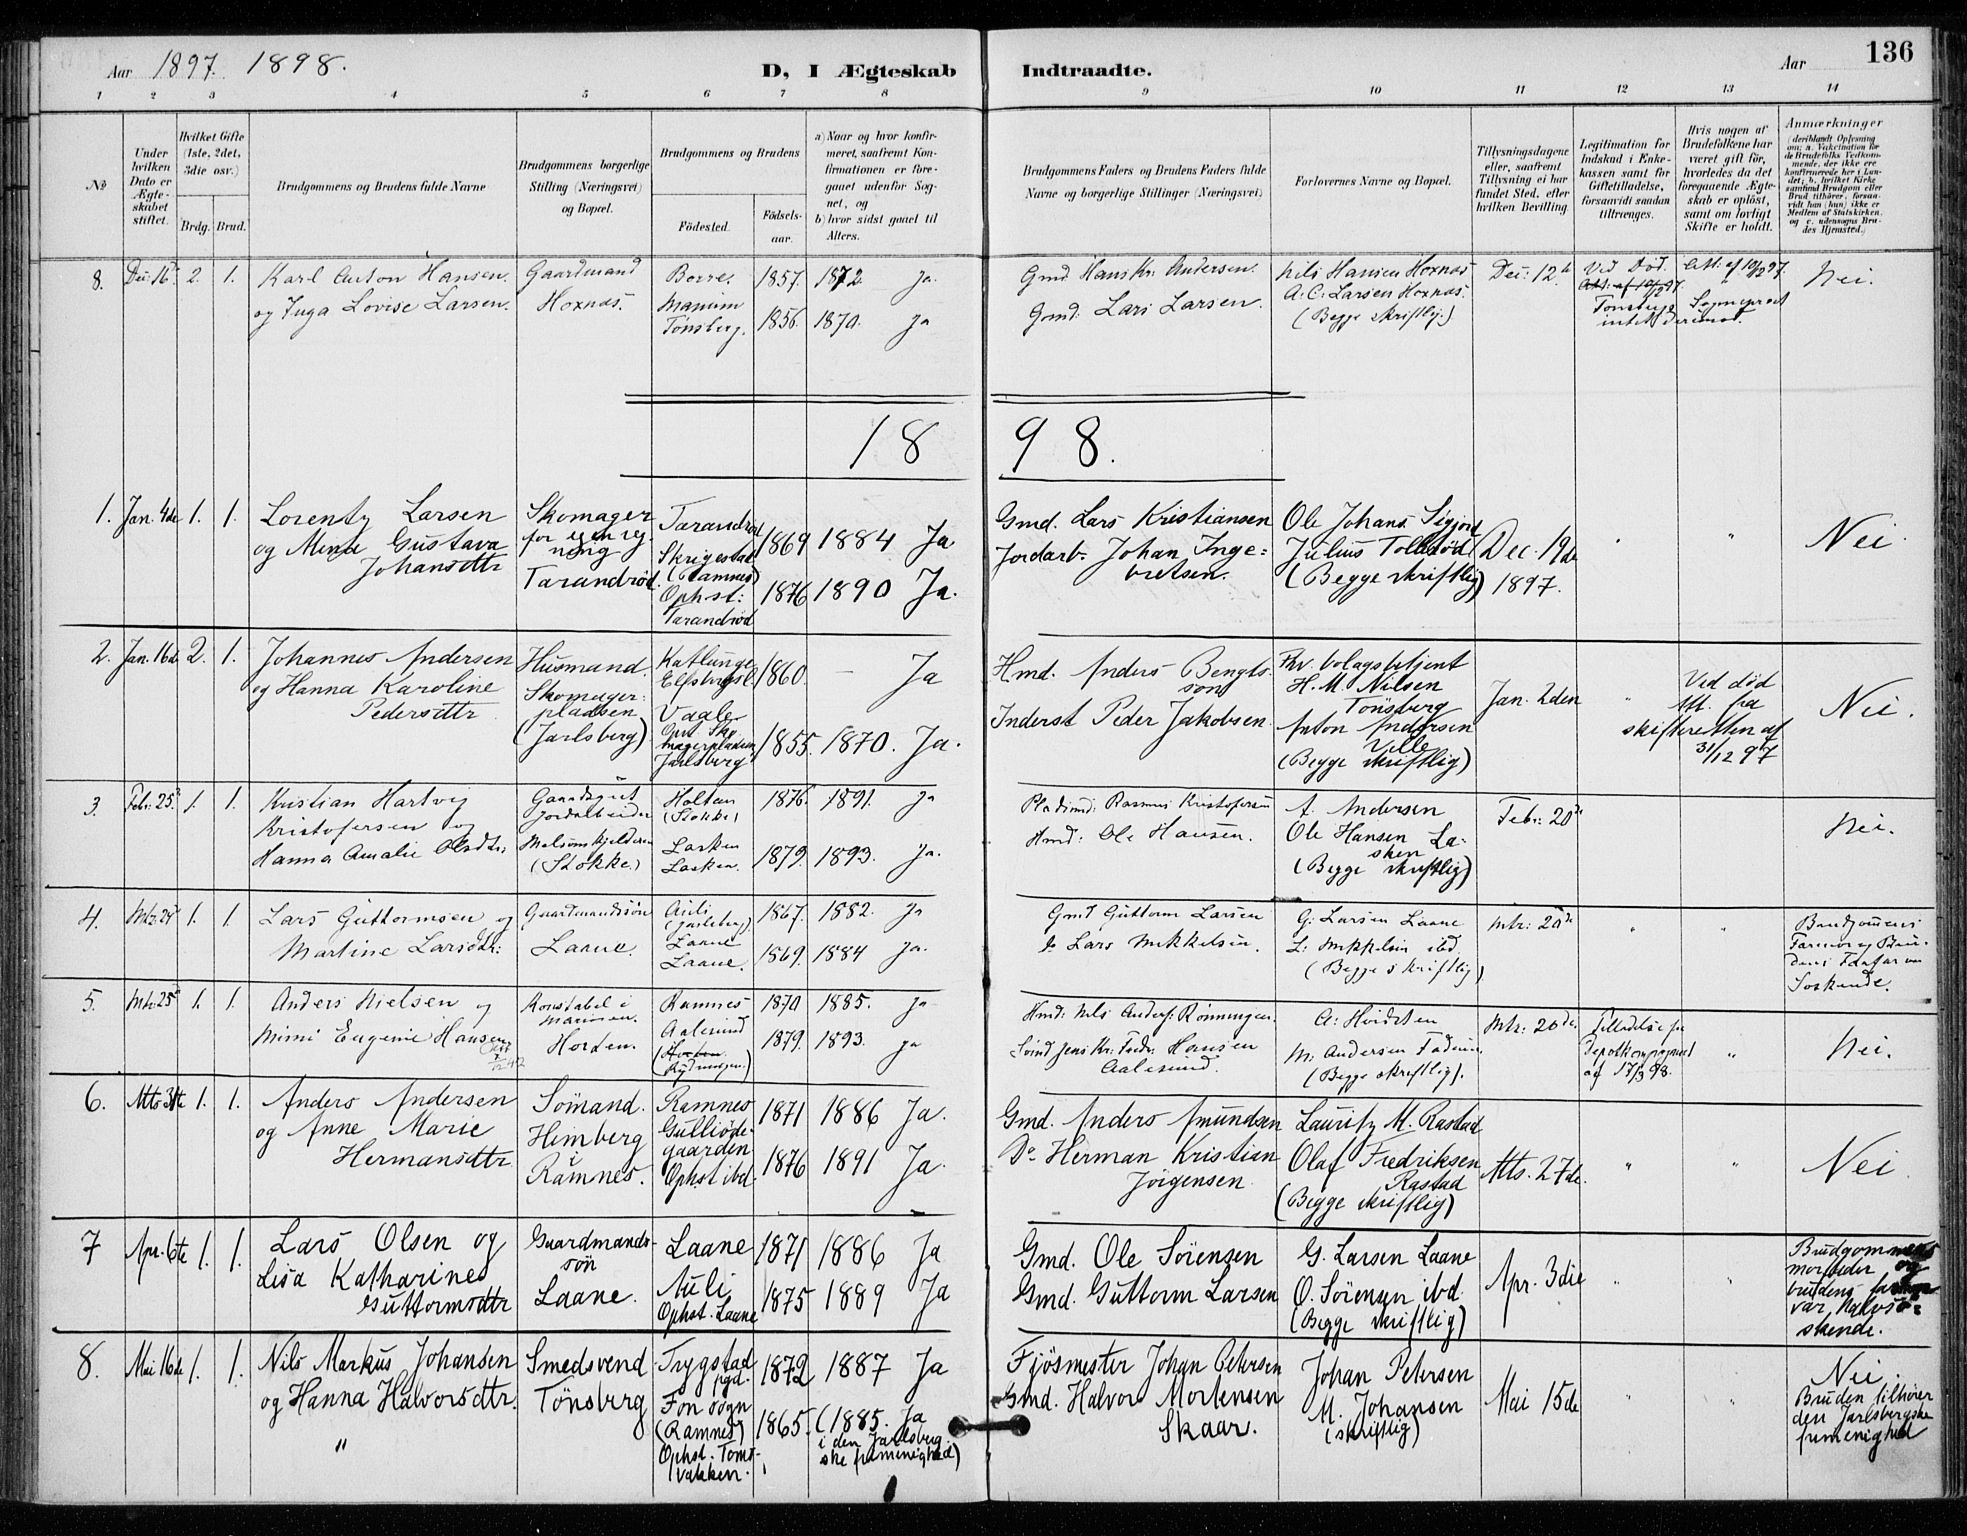 Aar 1897. 1898.
D, I Ægteskab Indtraadte.
Aar
136
1 2 3 4 5 6 7 8 9 10 11 12 13 14
No
Under hvilken Dato er Ægteskabet stiftet.
Hvilket Gifte (1ste, 2det, 3die osv.)
Brdg. Brud.
Brudgommens og Brudens fulde Navne
Brudgommens borgerlige Stilling (Næringsvei) og Bopæl.
Brudgommens og Brudens
Fødested.
Fødsels-aar.
a) Naar og hvor konfirmeret, saafremt Konfirmationen er foregaaet udenfor Sognet, og
b) hvor sidst gaaet til Alters.
Brudgommens Faders og Brudens Faders fulde Navne og borgerlige Stillinger (Næringsvei)
Forlovernes Navne og Bopæl.
Tillysningsdagene eller, saafremt Tillysning ei har fundet Sted, efter hvilken Bevilling
Legitimation for Indskud i Enkekassen samt for Giftetilladelse, forsaavidt saadan tiltrænges.
Hvis nogen af Brudefolkene har været gift før, hvorledes da det foregaaende Ægteskab er opløst, samt om lovligt Skifte er holdt.
Anmærkninger
8. Dec: 16 2. 1. Karl Anton Hansen. Gaardmand Borre. 1857. 1872. Ja.
og Inga Lovise Larsen. Hoxnæs. Tønsberg. 1856. 1870. Ja
Gmd: Hans Kr. Andersen. Nils Hansen Hoxnæs Dec: 12 Ved Død. Att: af 10/12 97. Nei.
Gmd: Lars Larsen. A. C. Larsen Hoxnæs.
(Begge skriftlig.) Tønsbergs Sogneprest
intet derimod.
1898.
1. Jan. 4de 1. 1. Lorentz Larsen Skomager Tarandrød 1869 1884 Ja
og Mena Gustava for egen reg-
Johansdtr ning Skrigestad
Tarandrød. (Ramnes) 1876 1890 Ja.
Ophst: Tarandrød
Gmd. Lars Kristiansen Ole Johans. Sigjord
Jordarb. Johan Inge= Julius Tollerød Dec. 19de " " Nei.
bretsen. (Begge skriftlig) 1897.
2. Jan. 16de 2. 1. Johannes Andersen Husmand. Katlunge 1860. – Ja
og Hanna Karoline Skomager-
Pedersdtr pladsen Vaale
(Jarlsberg) Jarlsberg 1855. 1870. Ja.
Hmd. Anders Bengts- Fhv. bolagsbetjent Ved død
son H. M. Nilsen Jan. 2den " Att. fra Nei.
Inderst Peder Jakobsen. Tønsberg skifteretten af
Anton Andersen 31/12 97
Ville
(Begge skriftlig)
3. Febr: 25 1. 1. Kristian Hartvig Gaardsgut Holtan 1876. 1891. Ja
Kristofersen og Jordarbeider (Stokke)
Hanna Amalie Olsdtr: Melsomkjelderen Lasken 1879. 1893. Ja.
(Stokke.) Lasken.
Pladsmd: Rasmus Kristofersen A. Andersen Febr: 20 Nei.
Hmd: Ole Hansen. Ole Hansen La-
sken
(Begge skriftlig)
4. Mts: 24 1. 1. Lars Guttormsen og Gaardmandssøn Auli 1867. 1882. Ja
Martine Larsdtr: Laane. (Jarlsberg)
Laane
Laane. 1869. 1884 Ja.
Gmd Guttorm Larsen G. Larsen Laane Mts: 20de " " Brudgommens
do Lars Mikkelsen. L. Mikkelsen ibd Farmor og Bru-
(Begge skriftlig) dens Farfar var
Søskende.
5. Mts: 25 1. 1. Anders Nielsen og Konstabel i Ramnes 1870 1885. Ja
Mimi Eugenie Hansen Marinen. Aalesund
Horten. 1879. 1893. Ja
Hmd: Nils Anders: Rønningen. A. Hvidsten Mts: 20de. Tilladelse fra
Jens Kr. Fredr. Hansen M. Andersen Depotkompagniet " Nei.
Aalesund. (Begge skriftlig). af 17/3 98.
6. Mts 31te 1. 1. Anders Andersen Sømand. Ramnes 1871 1886 Ja.
og Anne Marie Heimberg Gulliøde-
Hermansdtr i gaarden 1876 1891 Ja.
Ramnes. Ophst ibd.
Gmd. Anders Amundsen Lauritz M. Rastad
Do Herman Kristian Olaf Fredriksen Mts. 27de. " " Nei.
Jørgensen Rastad
(Begge skriftlig)
7 Apr. 6te 1. 1. Lars Olsen og Gaardmands- Laane 1871 1886 Ja
Lisa Katharine søn Auli
Guttormsdtr Laane. Ophst. Laane 1875 1889 Ja
Gmd. Ole Sørensen G. Larsen Laane Brudgommens
Gmd. Guttorm Larsen O. Sørensen ibd. Apr. 3die " " morfader og
(Begge skriftlig) brudens farmor
var halvsø-
skende.
8. Mai 16de 1. 1. Nils Markus Johansen Smedsvend Trygstad 1872 1887 Ja
og Hanna Halvorsdtr. Tønsberg pgd.
" Fon sogn
(Ramnes) 1865. (1885. Ja
i den Jarlsberg-
ske frimenighed)
Fjøsmester Johan Petersen Johan Petersen Nei.
Gmd. Halvor Mortensen M. Johansen Mai 15de " " Bruden tilhører
Skaar. (skriftlig) den Jarlsbergske
frimenighed